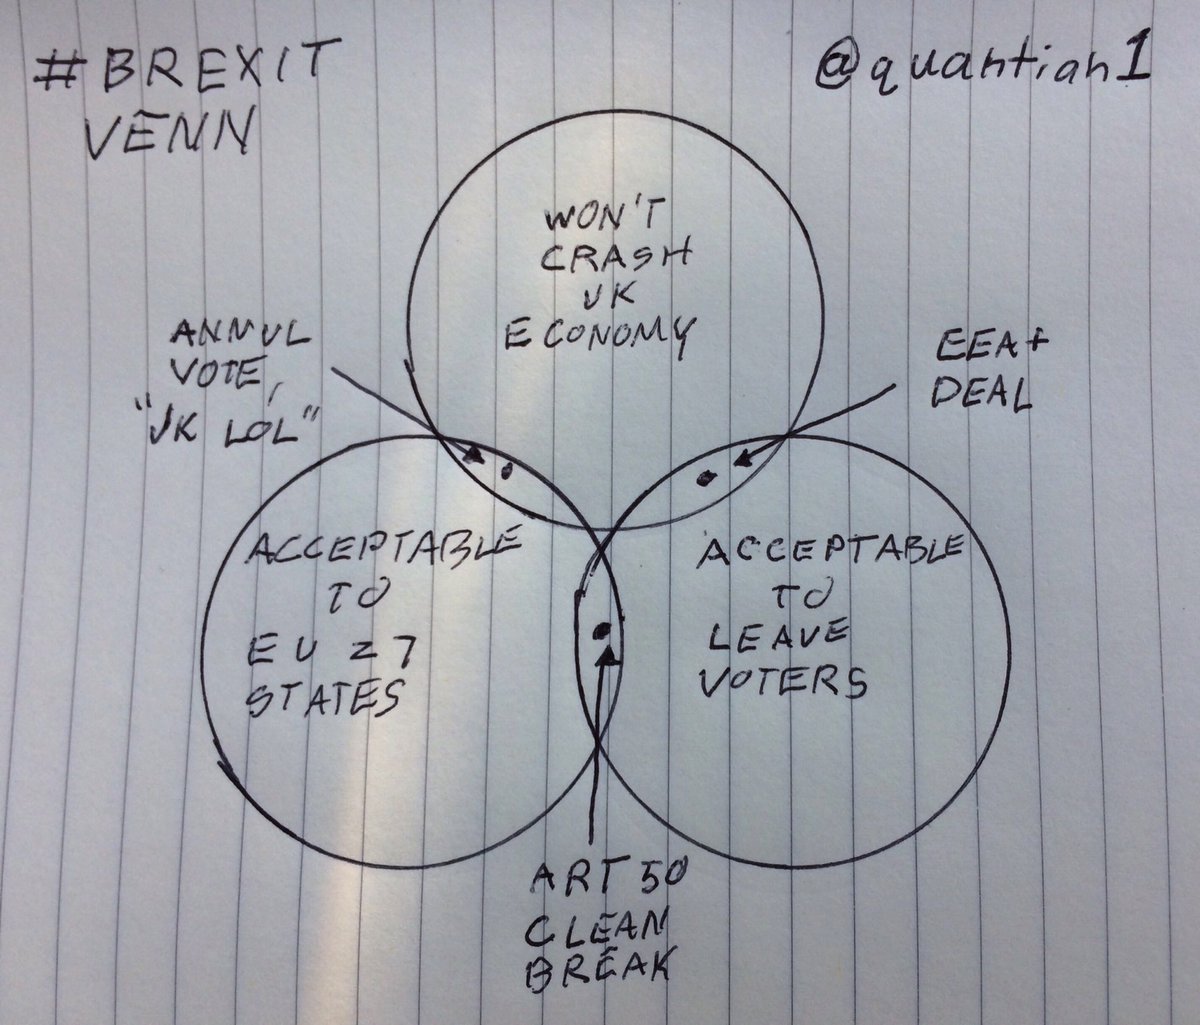 #BREXIT
VENN
@quantian1
WON'T
CRASH
UK
ECONOMY
ANNUL
VOTE,
"JK LOL"
EEA+
DEAL
ACCEPTABLE
TO
EU 27
STATES
ACCEPTABLE
TO
LEAVE
VOTERS
ART 50
CLEAN
BREAK